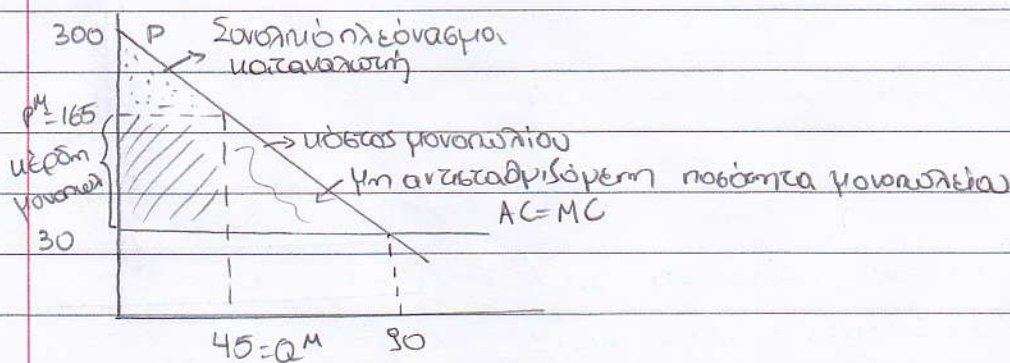 300 P Συνολικό πλεόνασμα
καταναλωτή
P^M=165
κέρδη
μονοπωλ
κόστος μονοπωλίου
μη αντισταθμιζόμενη ποσότητα μονοπωλείου
AC=MC
30
45=Q^M 90